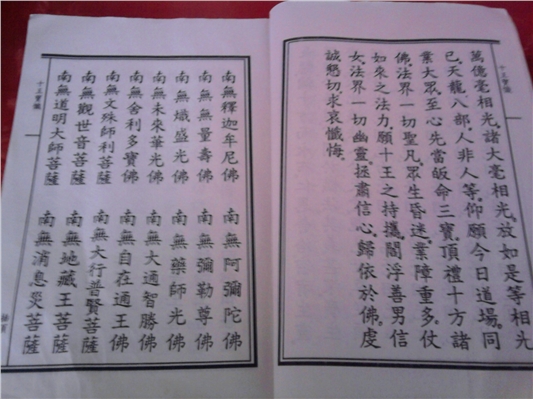 十王寶懺
萬億毫相光。諸大毫相光。放如是等相光
已。天龍八部。人非人等。仰願今日道場。同
業大眾。至心先當皈命三寶。頂禮十方諸
佛。法界一切聖凡。眾生昏迷。業障重多。仗
如來之法力。願十王之持攜。閻浮善男信
女。法界一切幽靈。拯肅信心。歸依於佛。虔
誠懇切。求哀懺悔。
南無釋迦牟尼佛 南無阿彌陀佛
南無無量壽佛 南無彌勒尊佛
南無熾盛光佛 南無藥師光佛
南無未來華光佛 南無大通智勝佛
南無舍利多寶佛 南無自在通王佛
南無文殊師利菩薩 南無大行普賢菩薩
南無觀世音菩薩 南無地藏王菩薩
南無道明大師菩薩 南無消息災菩薩
十王寶懺